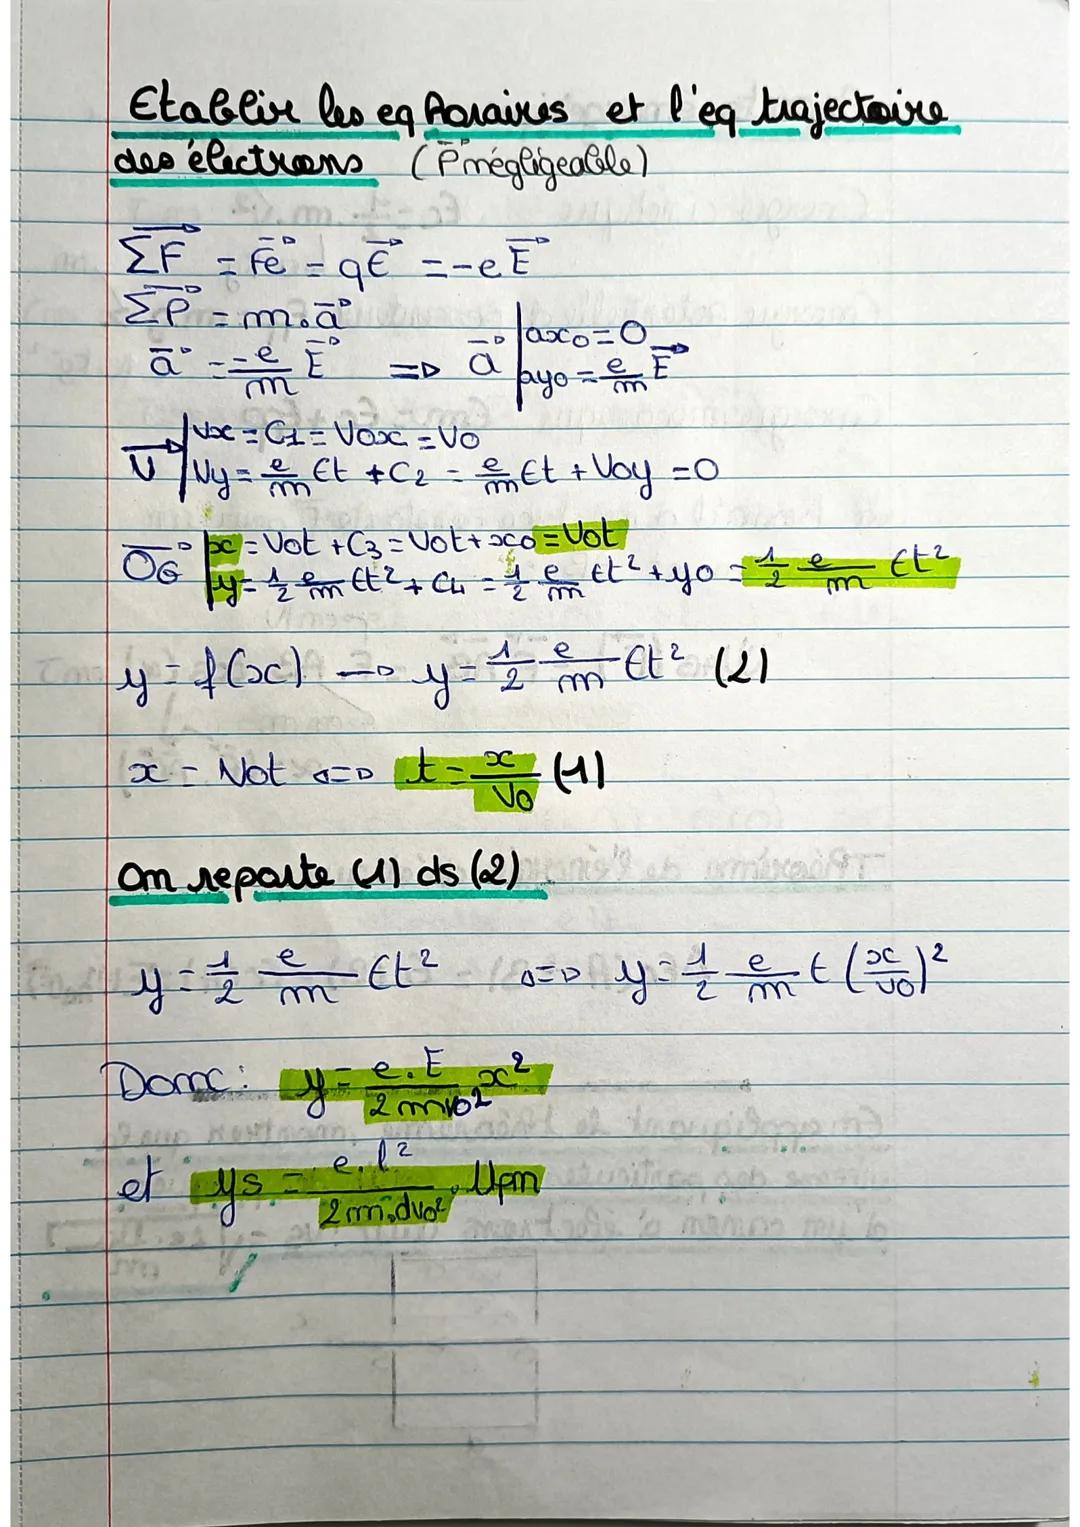 Etablir les eq horaires et l'eq trajectoire
des électrons (P⃗ négligeable)
ΣF⃗ = Fe⃗ = qE⃗ = -e E⃗
ΣP⃗ = m.a⃗
a⃗ = -e/m E⃗ => a⃗ | ax0 = 0
ay0 = e/m E⃗
V⃗ | Vx = C1 = V0x = V0
Vy = e/m Et + C2 = e/m Et + V0y = 0
OG⃗ | x = V0t + C3 = V0t + x0 = V0t
y = 1/2 e/m Et² + C4 = 1/2 e/m Et² + y0 = 1/2 e/m Et²
y = f(x) → y = 1/2 e/m Et² (2)
x = V0t <=> t = x/V0 (1)
On reporte (1) ds (2)
y = 1/2 e/m Et² <=> y = 1/2 e/m E (x/v0)²
Donc: y = e.E/2mv0² x²
et ys = e.l²/2m.dv0² . Upm